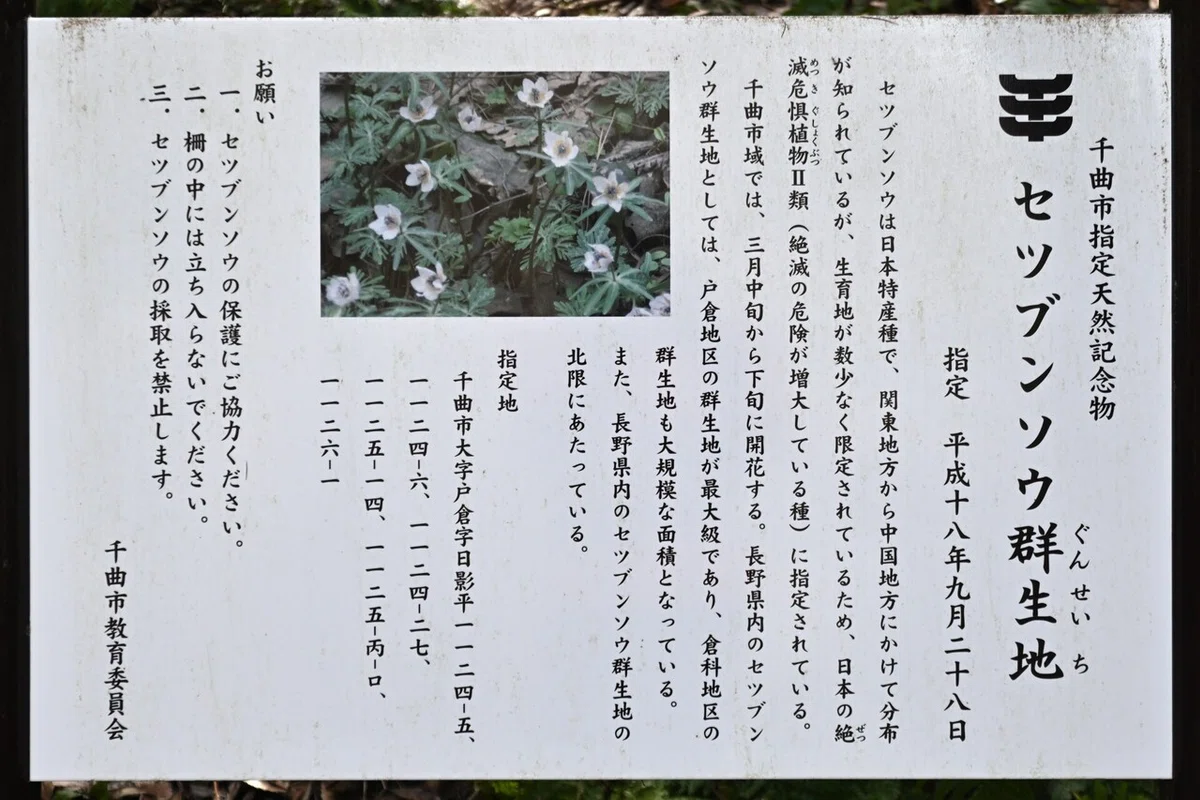 千曲市指定天然記念物
セツブンソウ群生地
ぐんせいち
指定　平成十八年九月二十八日
セツブンソウは日本特産種で、関東地方から中国地方にかけて分布
が知られているが、生育地が数少なく限定されているため、日本の絶
ぜつ
滅危惧植物Ⅱ類（絶滅の危険が増大している種）に指定されている。
めつきぐしょくぶつ
千曲市域では、三月中旬から下旬に開花する。長野県内のセツブン
ソウ群生地としては、戸倉地区の群生地が最大級であり、倉科地区の
群生地も大規模な面積となっている。
また、長野県内のセツブンソウ群生地の
北限にあたっている。
指定地
千曲市大字戸倉字日影平一一二四−五、
一一二四−六、一一二四−二七、
一一二五−一四、一一二五−丙−ロ、
一一二六−一
お願い
一．セツブンソウの保護にご協力ください。
二．柵の中には立ち入らないでください。
三．セツブンソウの採取を禁止します。
千曲市教育委員会